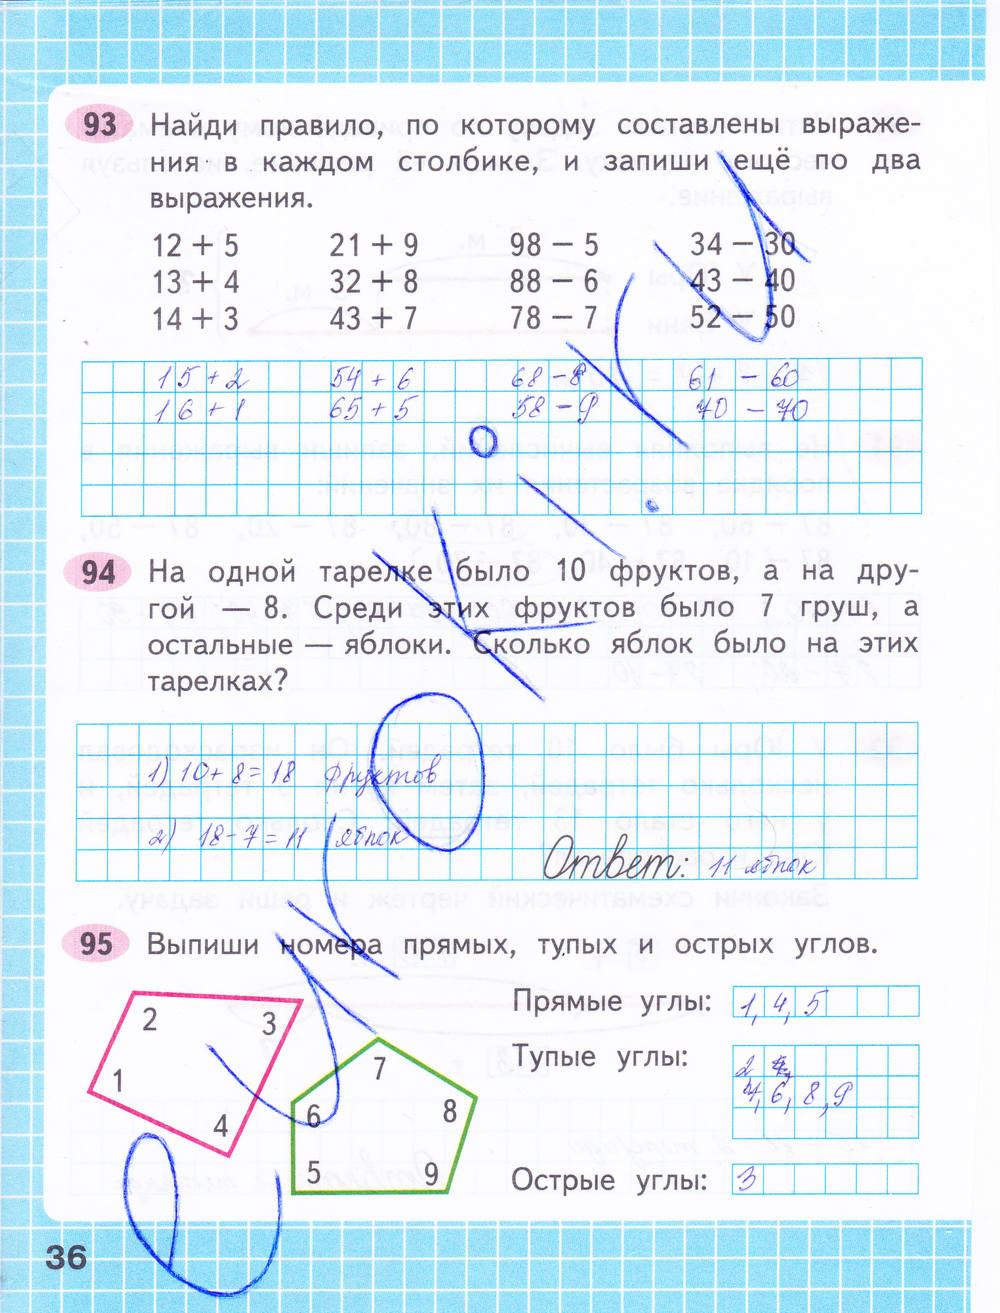 93 Найди правило, по которому составлены выраже-
ния в каждом столбике, и запиши ещё по два
выражения.
12 + 5 21 + 9 98 − 5 34 − 30
13 + 4 32 + 8 88 − 6 43 − 40
14 + 3 43 + 7 78 − 7 52 − 50
15 + 2 54 + 6 68 − 8 61 − 60
16 + 1 65 + 5 58 − 9 70 − 70
94 На одной тарелке было 10 фруктов, а на дру-
гой — 8. Среди этих фруктов было 7 груш, а
остальные — яблоки. Сколько яблок было на этих
тарелках?
1) 10 + 8 = 18 фруктов
2) 18 − 7 = 11 яблок
Ответ: 11 яблок
95 Выпиши номера прямых, тупых и острых углов.
2 3
1 4
7
6 8
5 9
Прямые углы: 1, 4, 5
Тупые углы: 2,
7, 6, 8, 9
Острые углы: 3
36